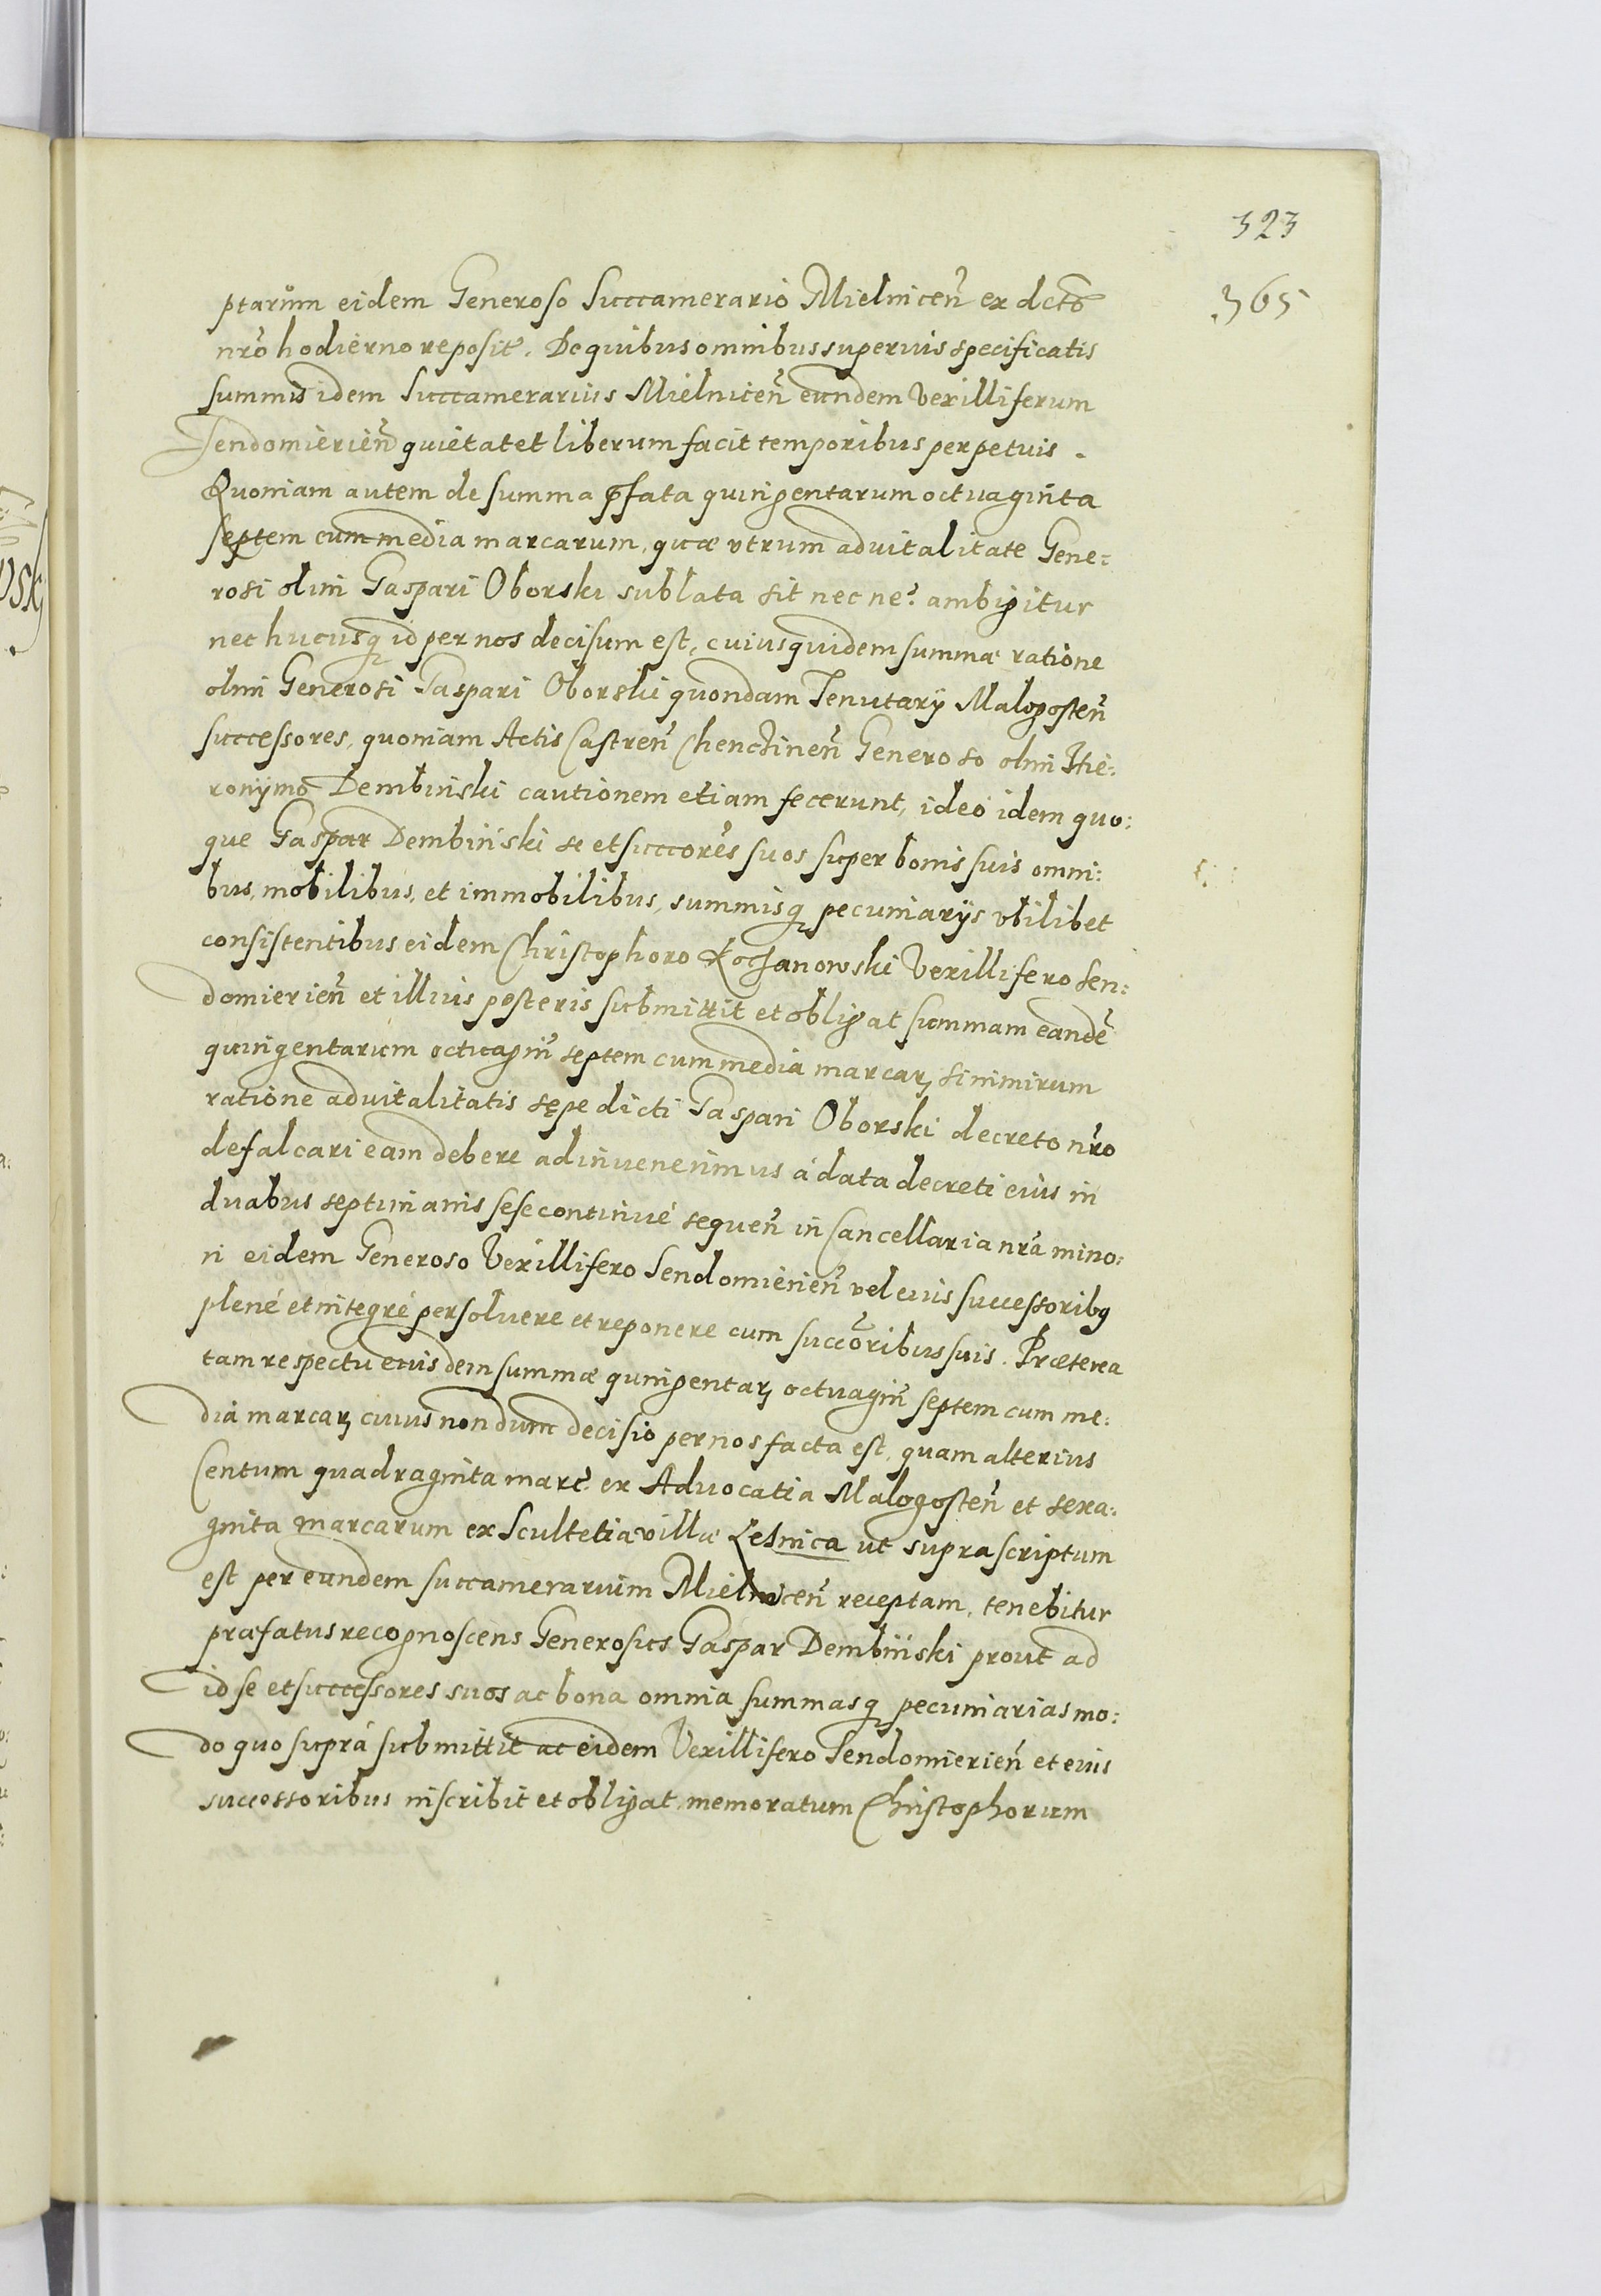 323
365
ptarum eidem Generoso Succamerario Mielnicen̄ ex dcto
nro hodierno reposit. De quibus omnibus superius specificatis
summis idem Succamerarius Mielnicen̄ eundem Vexilliferum
Sendomierien̄ quietat et liberum facit temporibus perpetuis.
Quoniam autem de summa pfata quingentarum octuaginta
septem cum media marcarum, quæ utrum aduitalitate Gene:
rosi olim Gaspari Oborski sublata sit nec ne? ambigitur
nec hucusq id per nos decisum est, cuius quidem summæ ratione
olim Generosi Gaspari Oborski quondam Tenutarij Malogosten̄
successores, quoniam Actis Castren̄ Chencinen̄ Generoso olim Hie:
ronymo Dembinski cautionem etiam fecerunt, ideo idem quo:
que Gaspar Dembiński se et succores suos super bonis suis omni:
bus, mobilibus, et immobilibus, summisq pecuniarijs ubilibet
consistentibus eidem Christophoro Kochanowski Vexillifero Sen:
domierien̄ et illius posteris submittit et obligat summam eandē
quingentarum octuagin̄ septem cum media marcar, si nimirum
ratione aduitalitatis sępe dicti Gaspari Oborski decreto nro
defalcari eam debere adinuenerimus à data decreti eius in
duabus septimanis sese continué sequen̄ in Cancellaria nrā mino:
ri eidem Generoso Vexillifero Sendomierien̄ vel eius successoribq
plené et integré persoluere et reponere cum succoribus suis. Præterea
tam respectu eiusdem summæ quingentar octuagin̄ septem cum me:
dia marcar cuius nondum decisio per nos facta est, quam alterius
Centum quadraginta marc. ex Aduocatia Malogosten̄ et sexa:
ginta marcarum ex Scultetia villæ Lesnica ut supra scriptum
est per eundem succamerarium Mielnicen̄ receptam, tenebitur
præfatus recognoscens Generosus Gaspar Dembiński prout ad
id se et successores suos ac bona omnia summasq pecuniarias mo:
do quo suprà submittit ac eidem Vexillifero Sendomierien̄ et eius
successoribus inscribit et obligat, memoratum Christophorum